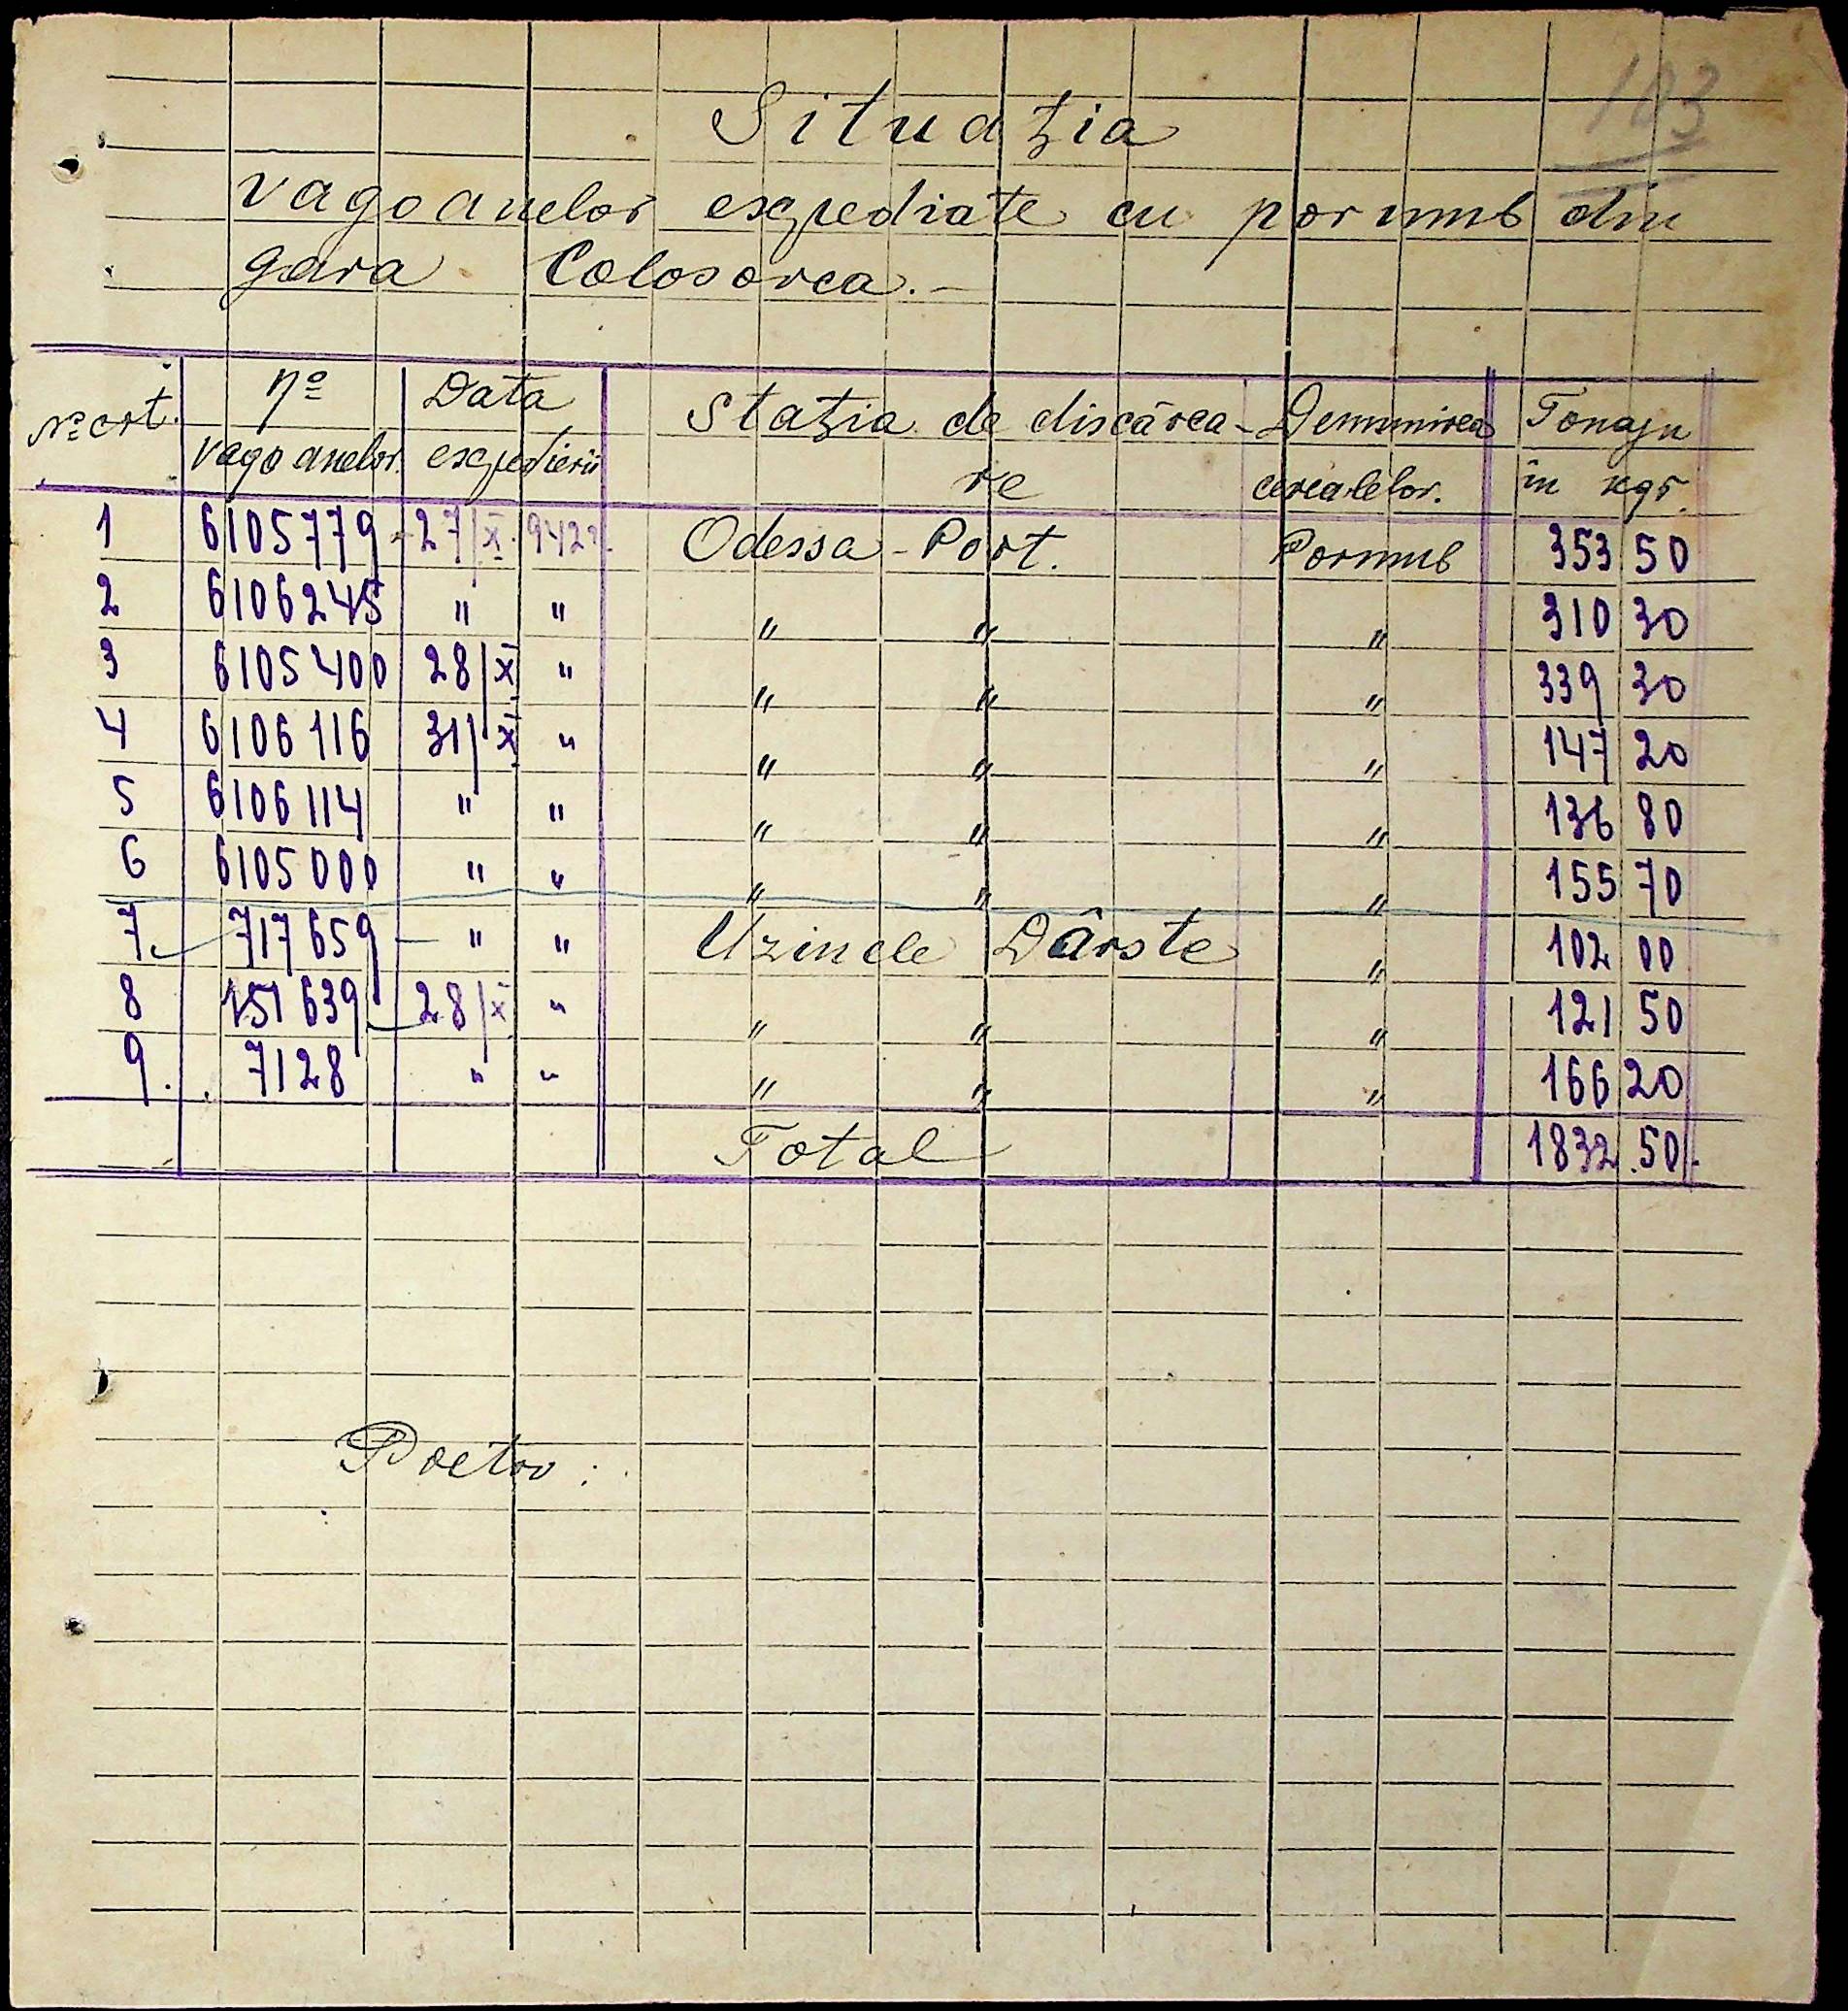 103
Situaţia
vagoanelor expediate cu porumb din
gara Colosorca.-
No crt. No vagoanelor. Data expedierii Staţia de discărca-re Denumirea cerealelor. Tonaju în kgr.
1 6105779 27/X. 942 Odessa - Port. Porumb 353 50
2 6106245 " " " " " 310 30
3 6105400 28/X " " " " 339 30
4 6106116 31/X " " " " 147 20
5 6106114 " " " " " 136 80
6 6105000 " " " " " 155 70
7 717659 - " " Uzinele Dârste " 102 00
8 151639 28/X " " " " 121 50
9. 7128 " " " " " 166 20
Total 1832.50.